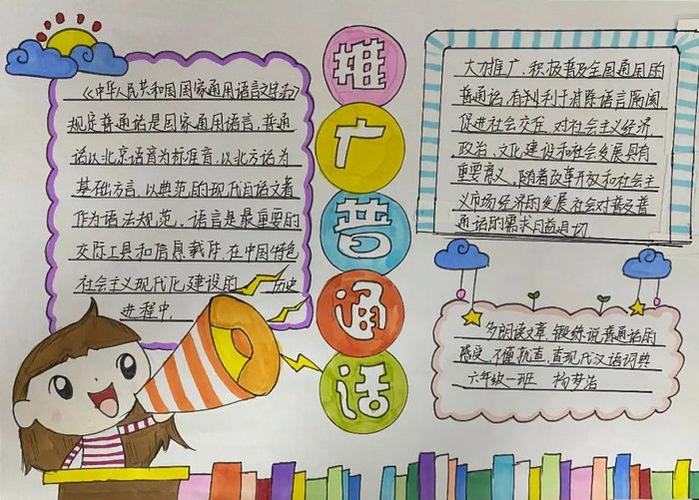 推
广
普
通
话
《中华人民共和国国家通用语言文字法》
规定普通话是国家通用语言,普通
话以北京语音为标准音,以北方话为
基础方言,以典范的现代白话文著
作为语法规范,语言是最重要的
交际工具和信息载体,在中国特色
社会主义现代化建设的 历史
进程中,
大力推广、积极普及全国通用的
普通话,有利于消除语言隔阂,
促进社会交往,对社会主义经济
政治、文化建设和社会发展具有
重要意义,随着改革开放和社会主
义市场经济的发展,社会对普及普
通话的需求日益迫切
多朗读文章,锻练说普通话的
感觉,不懂就查,查现代汉语词典
六年级一班 杨梦洁